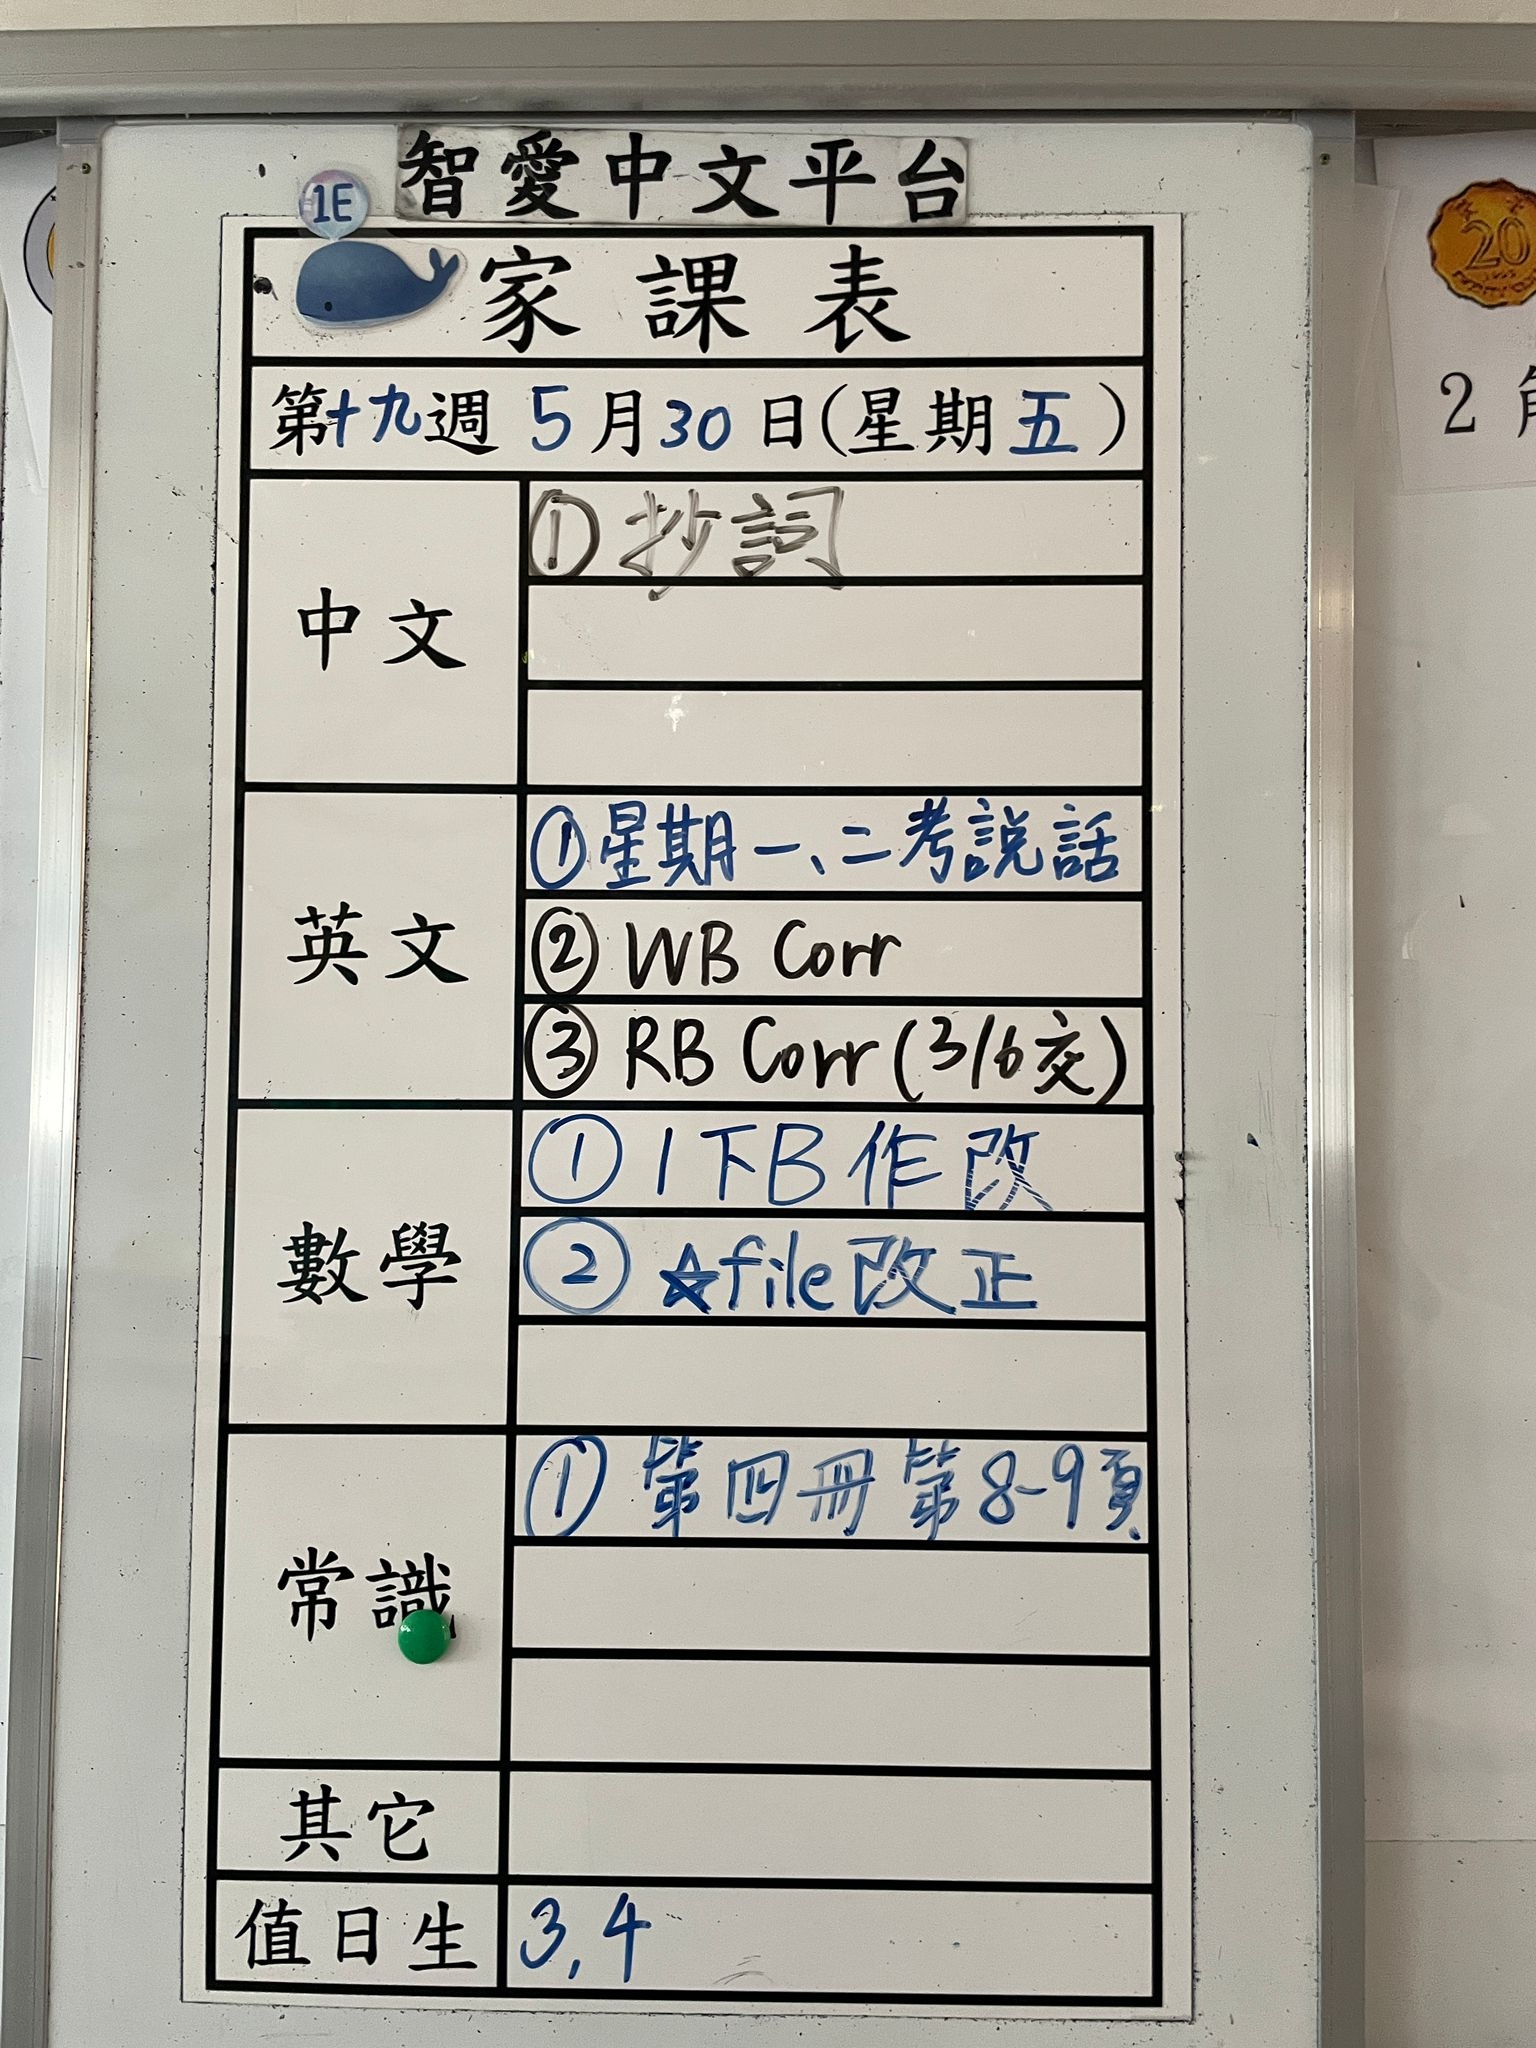 智愛中文平台
1E
家課表
第十九週 5月30日(星期五)
中文
① 抄詞
英文
①星期一、二考說話
② WB Corr
③ RB Corr (3/6交)
數學
① 1下B作改
② ☆file改正
常識
① 第四冊第8-9頁
其它
值日生
3,4
20
2